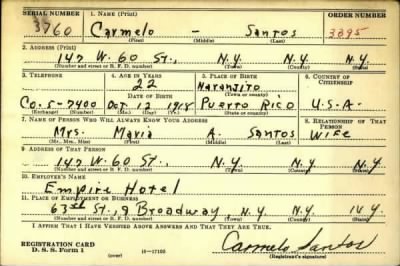 SERIAL NUMBER 1. NAME (Print) ORDER NUMBER
3760 Carmelo - Santos 3895
(First) (Middle) (Last)
2. ADDRESS (Print)
147 W. 60 St., N.Y. N.Y.
(Number and street or R. F. D. number) (Town) (County) (State)
3. TELEPHONE 4. AGE IN YEARS 5. PLACE OF BIRTH 6. COUNTRY OF CITIZENSHIP
22 Naranjito
DATE OF BIRTH (Town or county)
Co. 5-7400 Oct. 12 1918 Puerto Rico U.S.A.
(Exchange) (Number) (Mo.) (Day) (Yr.) (State or country)
7. NAME OF PERSON WHO WILL ALWAYS KNOW YOUR ADDRESS 8. RELATIONSHIP OF THAT PERSON
Mrs. Maria A. Santos Wife
(Mr., Mrs., Miss) (First) (Middle) (Last)
9. ADDRESS OF THAT PERSON
147 W. 60 St., N.Y. N.Y.
(Number and street or R. F. D. number) (Town) (County) (State)
10. EMPLOYER'S NAME
Empire Hotel
11. PLACE OF EMPLOYMENT OR BUSINESS
63rd St., & Broadway N.Y. N.Y. N.Y.
(Number and street or R. F. D. number) (Town) (County) (State)
I AFFIRM THAT I HAVE VERIFIED ABOVE ANSWERS AND THAT THEY ARE TRUE.
REGISTRATION CARD
D. S. S. Form 1 (over) 16-17105 Carmelo Santos
(Registrant's signature)